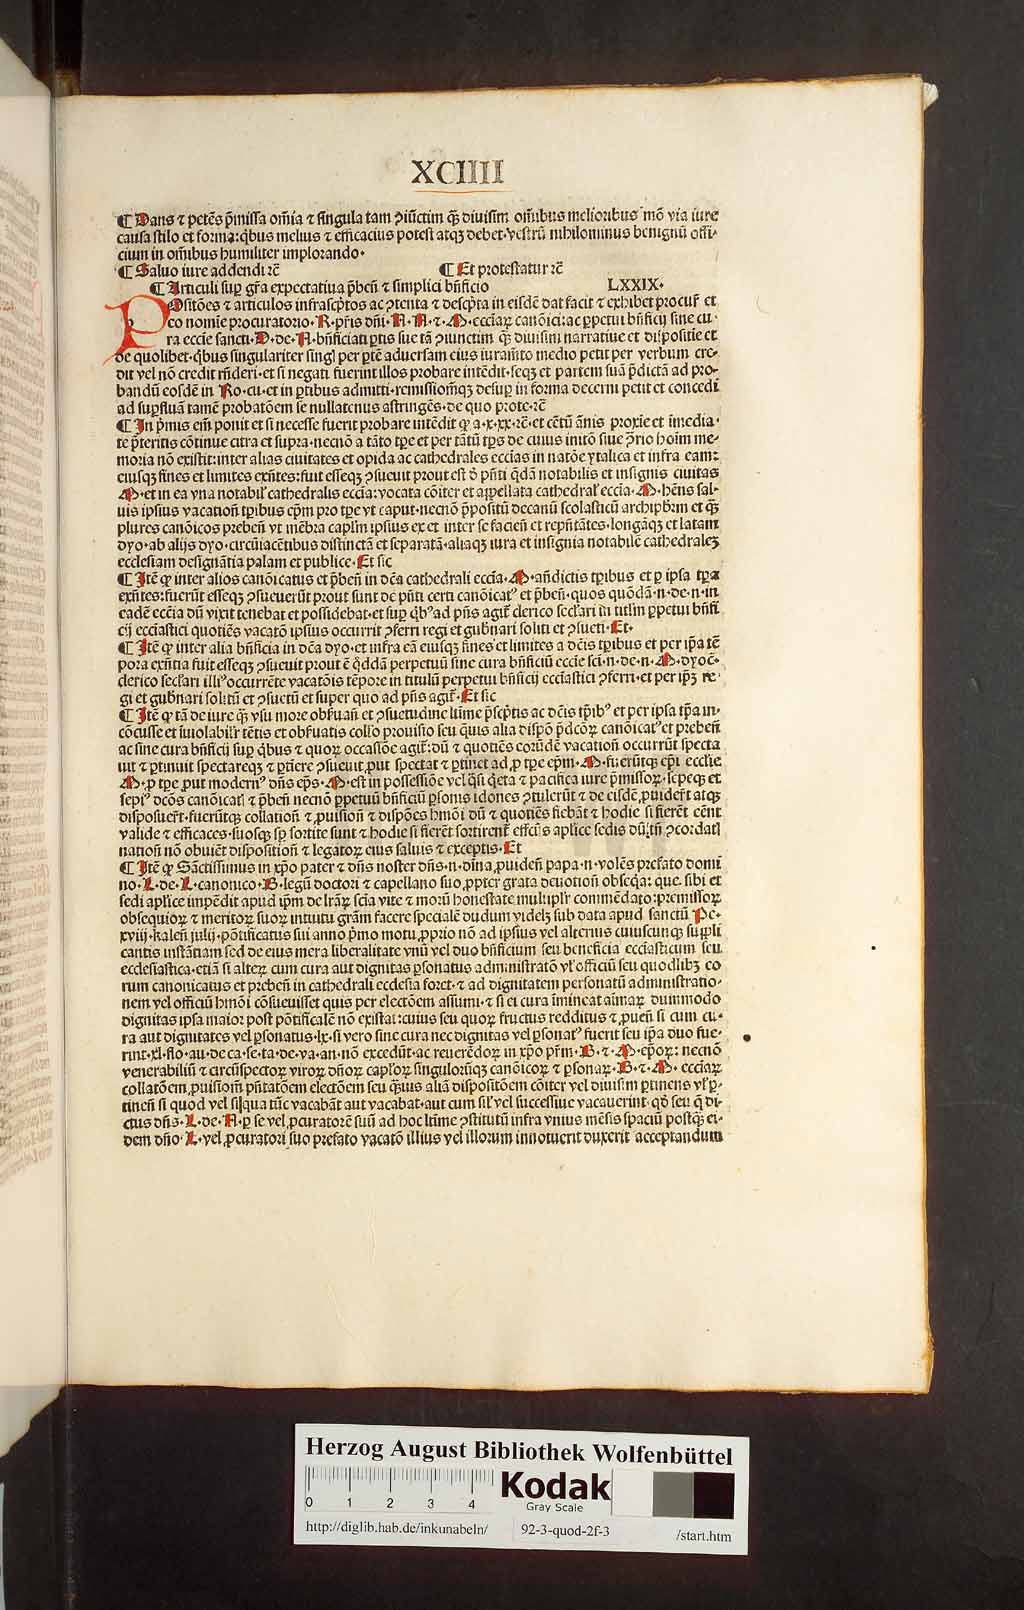 XCIIII
¶ Dans ⁊ petẽs p̃missa oĩa ⁊ singula tam ꝯiũctim q̃ꝫ diuisim oĩbus melioribus mõ via iure
causa stilo et forma: q̃bus melius ⁊ efficacius potest atqꝫ debet · vestrũ nihilominus benignũ offi⸗
cium in oĩbus humiliter implorando ·
¶ Saluo iure addendi ⁊c̃ ¶ Et protestatur ⁊c̃
¶ Articuli sup gr̃a expectatiua p̃beñ ⁊ simplici bñficio LXXIX ·
POsitões ⁊ articulos infrascp̃tos ac ꝯtenta ⁊ descp̃ta in eisdẽ dat facit ⁊ exhibet procur̃ et
eo nomie procuratorio · R · pr̃is dñi · N · N · ⁊ · M · ecciaꝝ canoĩci: ac ꝑpetui bñficij sine cu⸗
ra eccie sancti · D · de · N · bñficiati ꝑtis sue tã ꝯiunctim q̃ꝫ diuisim narratiue et dispositie et
de quolibet · q̃bus singulariter singl̃ per ptẽ aduersam eius iuram̃to medio petit per verbum cre⸗
dit vel nõ credit rñderi · et si negati fuerint illos probare intẽdit · seqꝫ et partem suã p̃dictã ad pro⸗
bandũ eosdẽ in Ro · cu · et in ꝑtibus admitti · remissiomqꝫ desup in forma decerni petit et concedi
ad supfluã tamẽ probatõem se nullatenus astringẽs · de quo prote · ⁊c̃
¶ In p̃mis em̃ ponit et si necesse fuerit probare intẽdit ꝙ a · x · xx · ⁊c̃ · et cẽtũ ãnis proxie et ĩmedia⸗
te p̃teritis cõtinue citra et supra · necnõ a tãto tp̃e et per tãtũ tp̃s de cuius initõ siue p̃rio hoĩm me⸗
moria nõ existit: inter alias ciuitates et opida ac cathedrales eccias in natõe ytalica et infra eam:
eiusqꝫ fines et limites exñtes: fuit esseqꝫ ꝯsueuit prout est d̃ pñti q̃dã notabilis et insignis ciuitas
M · et in ea vna notabil̃ cathedralis eccia: vocata cõiter et appellata cathedral̃ eccia · M · hẽns sal⸗
uis ipsius vacatioñ tp̃ibus ep̃m pro tp̃e vt caput · necnõ p̃positũ decanũ scolasticũ archipb̃rm et q̃ꝫ
plures canoĩcos prebeñ vt mẽbra caplĩm ipsius ex et inter se facieñ et repñtãtes · longãqꝫ et latam
dyo · ab alijs dyo · circũiacẽtibus distinctã et separatã · aliaqꝫ iura et insignia notabilẽ cathedraleꝫ
ecclesiam designãtia palam et publice · Et sic
¶ Itẽ ꝙ inter alios canoĩcatus et p̃beñ in dc̃a cathedrali eccia · M · añdictis tp̃ibus et ꝑ ipsa tp̃a
exñtes: fuerũt esseqꝫ ꝯsueuerũt prout sunt de pñti certi canoĩcatꝰ et p̃beñ · quos quõdã · n · de · n · in
eadẽ eccia dũ vixit tenebat et possidebat · et sup q̃bꝰ ad pñs agit̃ clerico secl̃ari in titlm̃ ꝑpetui bñfi
cij ecciastici quotiẽs vacatõ ipsius occurrit ꝯferri regi et gubñari soliti et ꝯsueti · Et ·
¶ Itẽ ꝙ inter alia bñficia in dc̃a dyo · et infra eã eiusqꝫ fines et limites a dc̃is tp̃ibus et per ip̃a tẽ
pora exñtia fuit esseqꝫ ꝯsueuit prout ẽ q̃ddã perpetuũ sine cura bñficiũ eccie sc̃i · n · de · n · M · dyoc̃ ·
clerico secl̃ari illiꝰ occurrẽte vacatõis tẽpore in titulũ perpetui bñficij ecciastici ꝯferri · et per ip̃ꝫ re⸗
gi et gubñari solitũ et ꝯsuetũ et super quo ad pñs agit̃ · Et sic
¶ Itẽ ꝙ tã de iure qꝫ vsu more obs̃uañ et ꝯsuetudine ltĩme p̃scp̃tis ac dc̃is tp̃ibꝰ et per ipsa tp̃a in⸗
cõcusse et ĩuiolabilr̃ tẽtis et obs̃uatis coll̃o prouisio seu q̃uis alia dispõ p̃dcõꝝ canoĩcatꝰ et prebeñ
ac sine cura bñficij sup q̃bus ⁊ quoꝝ occasiõe agit̃: dũ ⁊ quotiẽs corũdẽ vacatioñ occurrũt specta
uit ⁊ ꝑtinuit spectareqꝫ ⁊ ꝑtĩere ꝯsueuit ꝓut spectat ⁊ ꝑtinet ad ꝓ tp̃e ep̃m · M · fuerũtqꝫ ep̃i ecclie
M · ꝓ tp̃e ꝓut modernꝰ dñs ep̃s · M · est in possessiõe vel q̃si q̃eta ⁊ pacifica iure p̃missoꝝ · sepeqꝫ et
sepiꝰ dcõs canoĩcatꝰ ⁊ p̃beñ necnõ ꝑpetuũ bñficiũ ꝑsonis idones ꝯtulerũt ⁊ de eisdẽ ꝓuider̃t atqꝫ
disposuer̃t · fuerũtqꝫ collatioñ ⁊ ꝓuisioñ ⁊ dispões hmõi dũ ⁊ quotiẽs fiebãt ⁊ hodie si fierẽt cẽnt
valide ⁊ efficaces · suosqꝫ sp̃ sortite sunt ⁊ hodie si fierẽt sortirent̃ effc̃us aplice sedis dũtñ ꝯcordati
natioñ nõ obuiẽt dispositioñ ⁊ legatoꝝ eius saluis ⁊ exceptis · Et
¶ Itẽ ꝙ Sãctissimus in xp̃o pater ⁊ dñs noster dñs · n · dĩna ꝓuideñ papa · n · volẽs prefato domi
no · L · de · L · canonico · B · legũ doctori ⁊ capellano suo ꝓpter grata deuotioñ obseq̃a: que · sibi et
sedi aplice impẽdit apud ip̃m de lr̃aꝝ scĩa vite ⁊ moꝝ honestate multiplr̃ commẽdato: premissoꝝ
obsequioꝝ ⁊ meritoꝝ suoꝝ intuitu gr̃am facere specialẽ dudum videlꝫ sub data apud sanctũ Pe⸗
xviij · kaleñ julij · põtificatus sui anno p̃mo motu ꝓprio nõ ad ipsius vel alterius cuiuscunqꝫ suppli
cantis instãtiam sed de eius mera liberalitate vnũ vel duo bñficium seu beneficia ecciasticum seu
ecclesiastica · etiã si alteꝝ cum cura aut dignitas ꝑsonatus administratõ vl̃ officiũ seu quodlibꝫ co
rum canonicatus et prebeñ in cathedrali ecclesia foret · ⁊ ad dignitatem personatũ administratio⸗
nem vel officiũ hmõi cõsueuisset quis per electõem assumi · ⁊ si ei cura ĩmineat aĩmaꝝ dummodo
dignitas ipsa maior post põtificalẽ nõ existat: cuius seu quoꝝ fructus redditus ⁊ ꝓueñ si cum cu⸗
ra aut dignitates vel ꝑsonatus · lx · si vero sine cura nec dignitas vel ꝑsonatꝰ fuerit seu ip̃a duo fue⸗
rint · xl · flo · au · de ca · se · ta · de · va · an · nõ excedũt · ac reuerẽdoꝝ in xp̃o pr̃m · B · ⁊ · M · ep̃oꝝ: necnõ
venerabiliũ ⁊ circũspectoꝝ viroꝝ dñoꝝ capl̃oꝝ singuloꝝqꝫ canoĩcoꝝ ⁊ ꝑsonaꝝ · B · ⁊ · M · ecciaꝝ
collatõem ꝓuisioĩm pñtatõem electõem seu q̃uis aliã dispositõem cõiter vel diuisim ꝑtinens vl̃ ꝑ⸗
tineñ si quod vel siqua tũc vacabãt aut vacabat · aut cum sil̃ vel successiue vacauerint · qd̃ seu q̃ di⸗
ctus dñs · L · de · N · ꝑ se vel ꝓcuratorẽ suũ ad hoc ltĩme ꝯstitutũ infra vnius mẽsis spaciũ postq̃ꝫ ei⸗
dem dño · L · vel ꝓcuratori suo prefato vacatõ illius vel illorum innotuerit duxerit acceptandum
Herzog August Bibliothek Wolfenbüttel
0 1 2 3 4 Kodak
Gray Scale
http://diglib.hab.de/inkunabeln/ 92-3-quod-2f-3 /start.htm